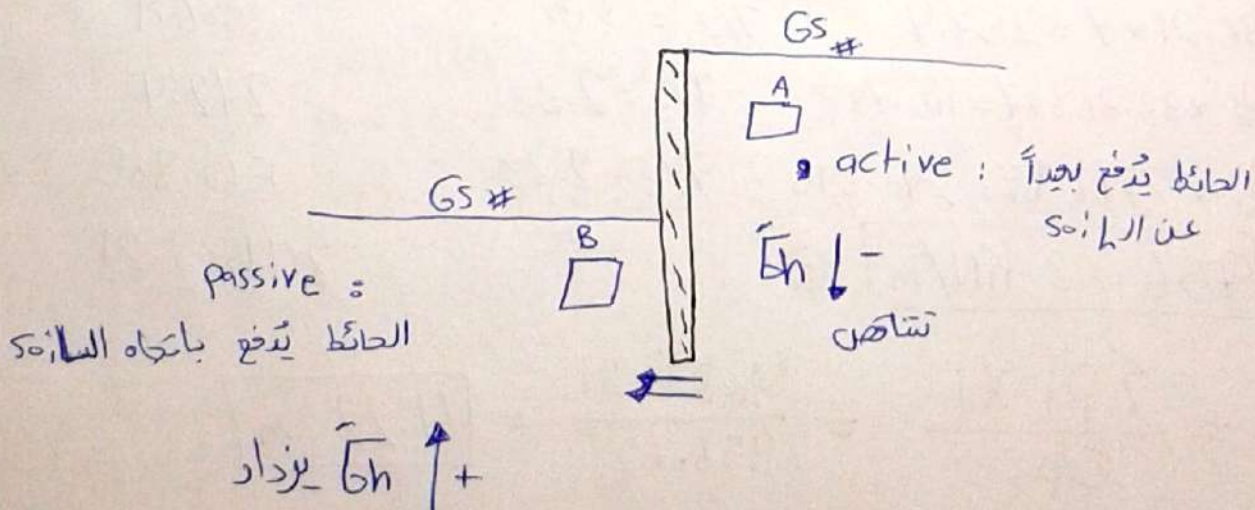 GS
A
• active : الحائط يُدفع بعيداً
عن الـ soil
σ̄h ↓ -
تتناقص
GS
B
passive :
الحائط يُدفع باتجاه الـ soil
σ̄h ↑ +
يزداد